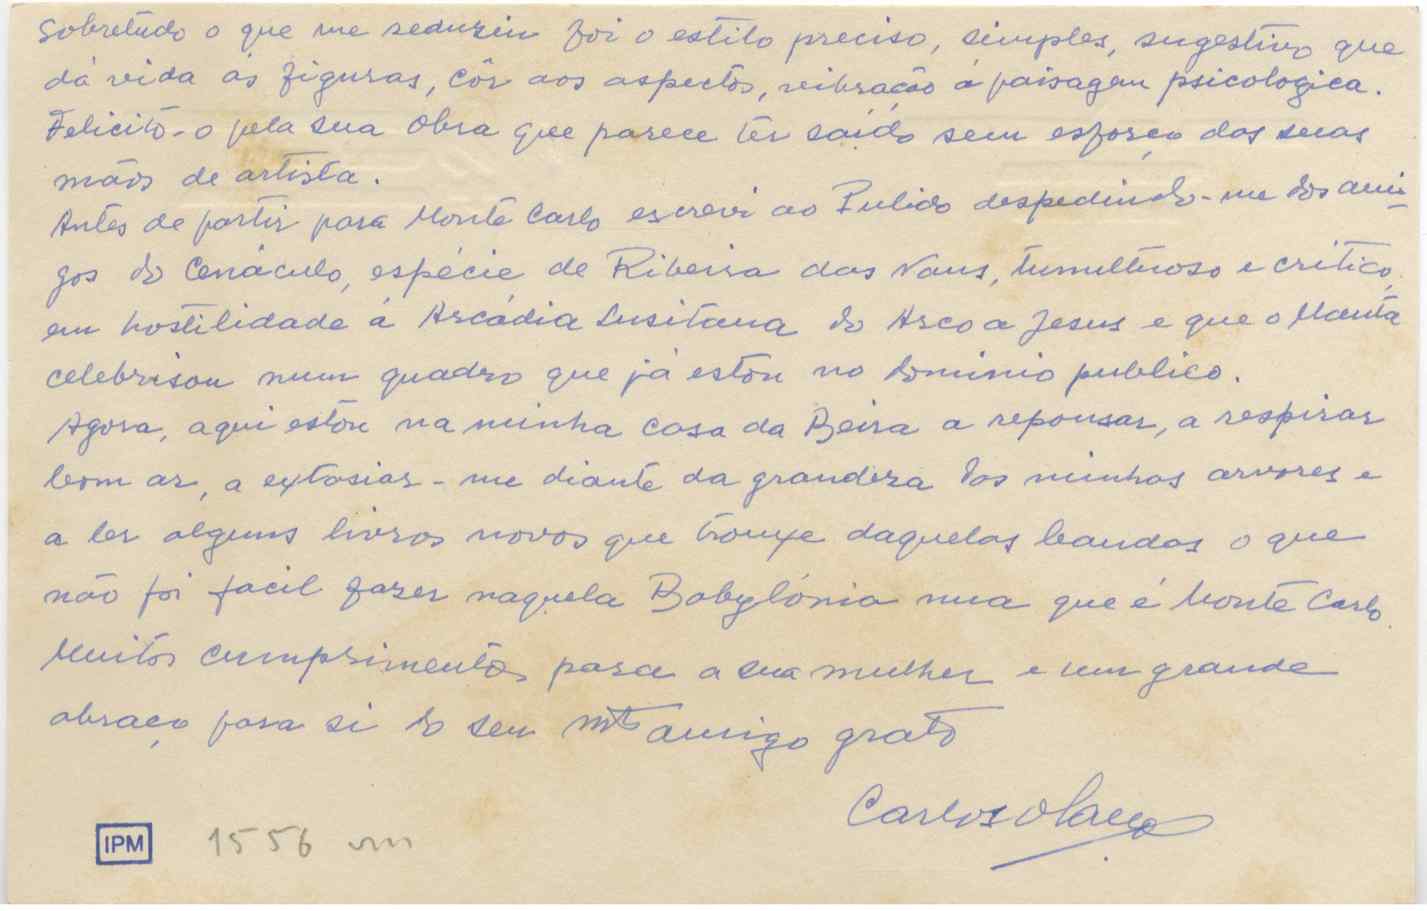 Sobretudo o que me seduziu foi o estilo preciso, simples, sugestivo que
dá vida ás figuras, côr aos aspectos, vibração á paisagem psicologica.
Felicito-o pela sua obra que parece ter saído sem esforço das suas
mãos de artista.
Antes de partir para Monte Carlo escrevi ao Pulido despedindo-me dos ami-
gos do Cenáculo, espécie de Ribeira das Naus, tumultuoso e critico,
em hostilidade á Arcádia Lusitana do Arco a Jesus e que o Manta
celebrisou num quadro que já estou no dominio publico.
Agora, aqui estou na minha casa da Beira a repousar, a respirar
bom ar, a extasiar-me diante da grandeza das minhas arvores e
a ler alguns livros novos que trouxe daquelas bandas o que
não foi facil fazer naquela Babylónia nua que é Monte Carlo.
Muitos cumprimentos para a sua mulher e um grande
abraço para si do seu mto amigo grato
Carlos Olavo
IPM
1556